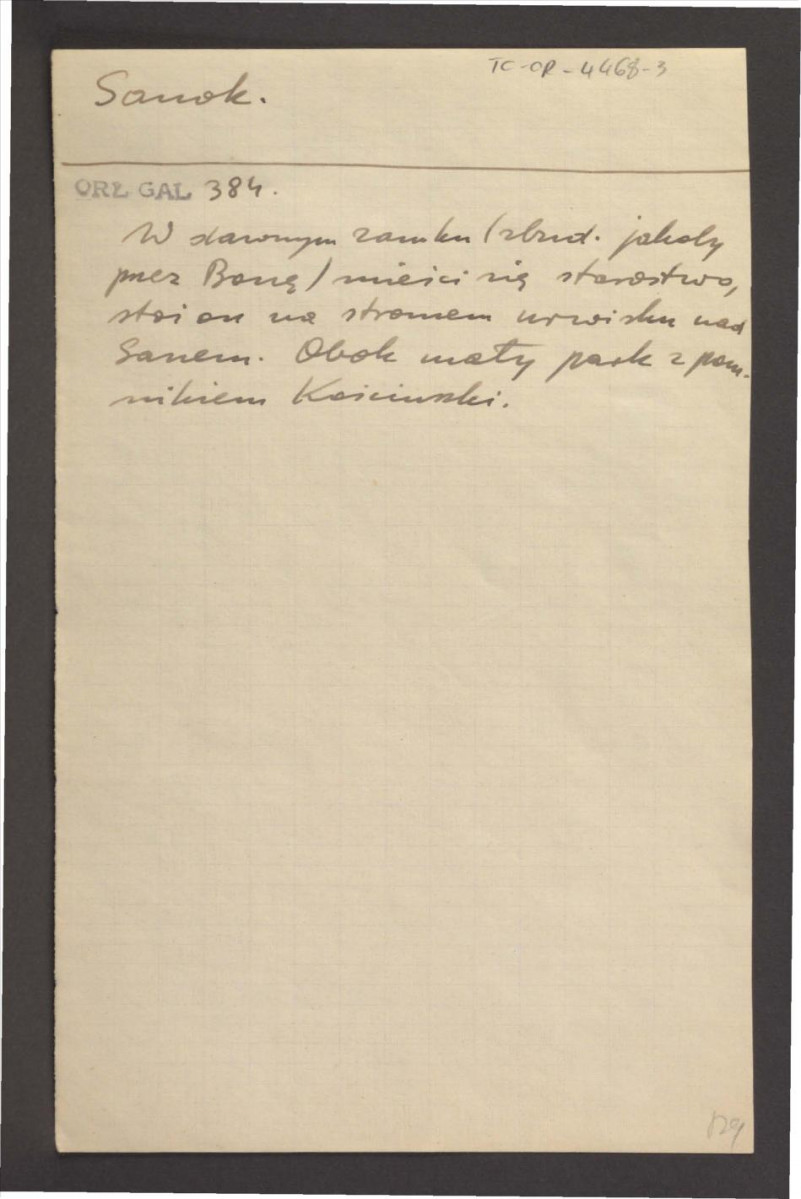 TC-CR-4468-3
Sanok.
ORŁ GAL 384.
W dawnym zamku (zbud. jakoby
przez Bonę) mieści się starostwo,
stoi on na stromem urwisku nad
Sanem. Obok mały park z pom-
nikiem Kościuszki.